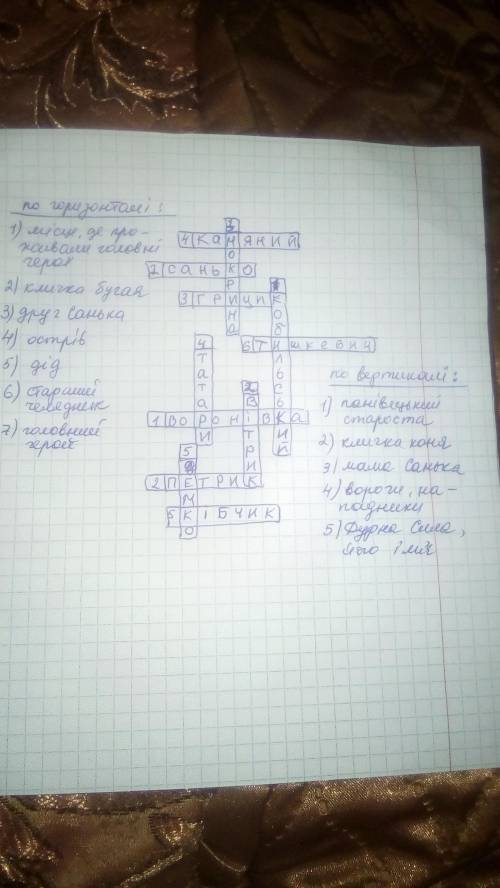 по горизонталі:
1) місце, де про-
живали головні
герої
2) кличка бугая
3) друг Санька
4) острів
5) дід
6) старший
челядник
7) головний
герой
4 КАМ'ЯНИЙ
САНЬКО
3 ГРИЦИК
6 ТИШКЕВИЧ
1 ВОРОНІВКА
2 ПЕТРИК
5 КІБЧИК
4 ТАТАРИ
2 ВІТРИК
по вертикалі:
1)
староста
2) кличка коня
3) мама Санька
4) вороги, на-
падники
5) Дурна Сила,
його ім'я